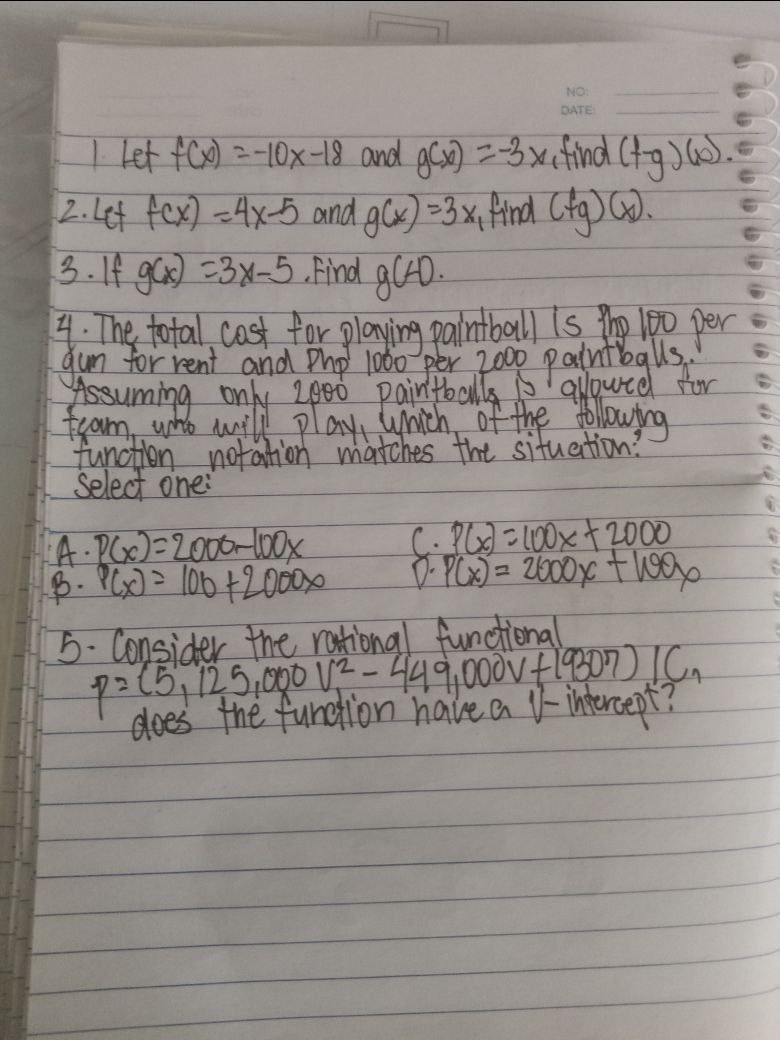 NO:
DATE:
1. Let f(x) = -10x-18 and g(x) = -3x, find (f-g)(x).
2. Let f(x) = 4x-5 and g(x) = 3x, find (fg)(x).
3. If g(x) = 3x-5. Find g(-1).
4. The total cost for playing paintball is Php 100 per
gun for rent and Php 1000 per 2000 paintballs.
Assuming only 2000 paintballs is allowed for
team who will play, which of the following
function notation matches the situation?
Select one:
A. P(x) = 2000-100x C. P(x) = 100x + 2000
B. P(x) = 100 + 2000x D. P(x) = 2000x + 100x
5. Consider the rational functional
p = (5,125,000 V² - 449,000V + 19307) / C,
does the function have a V-intercept?